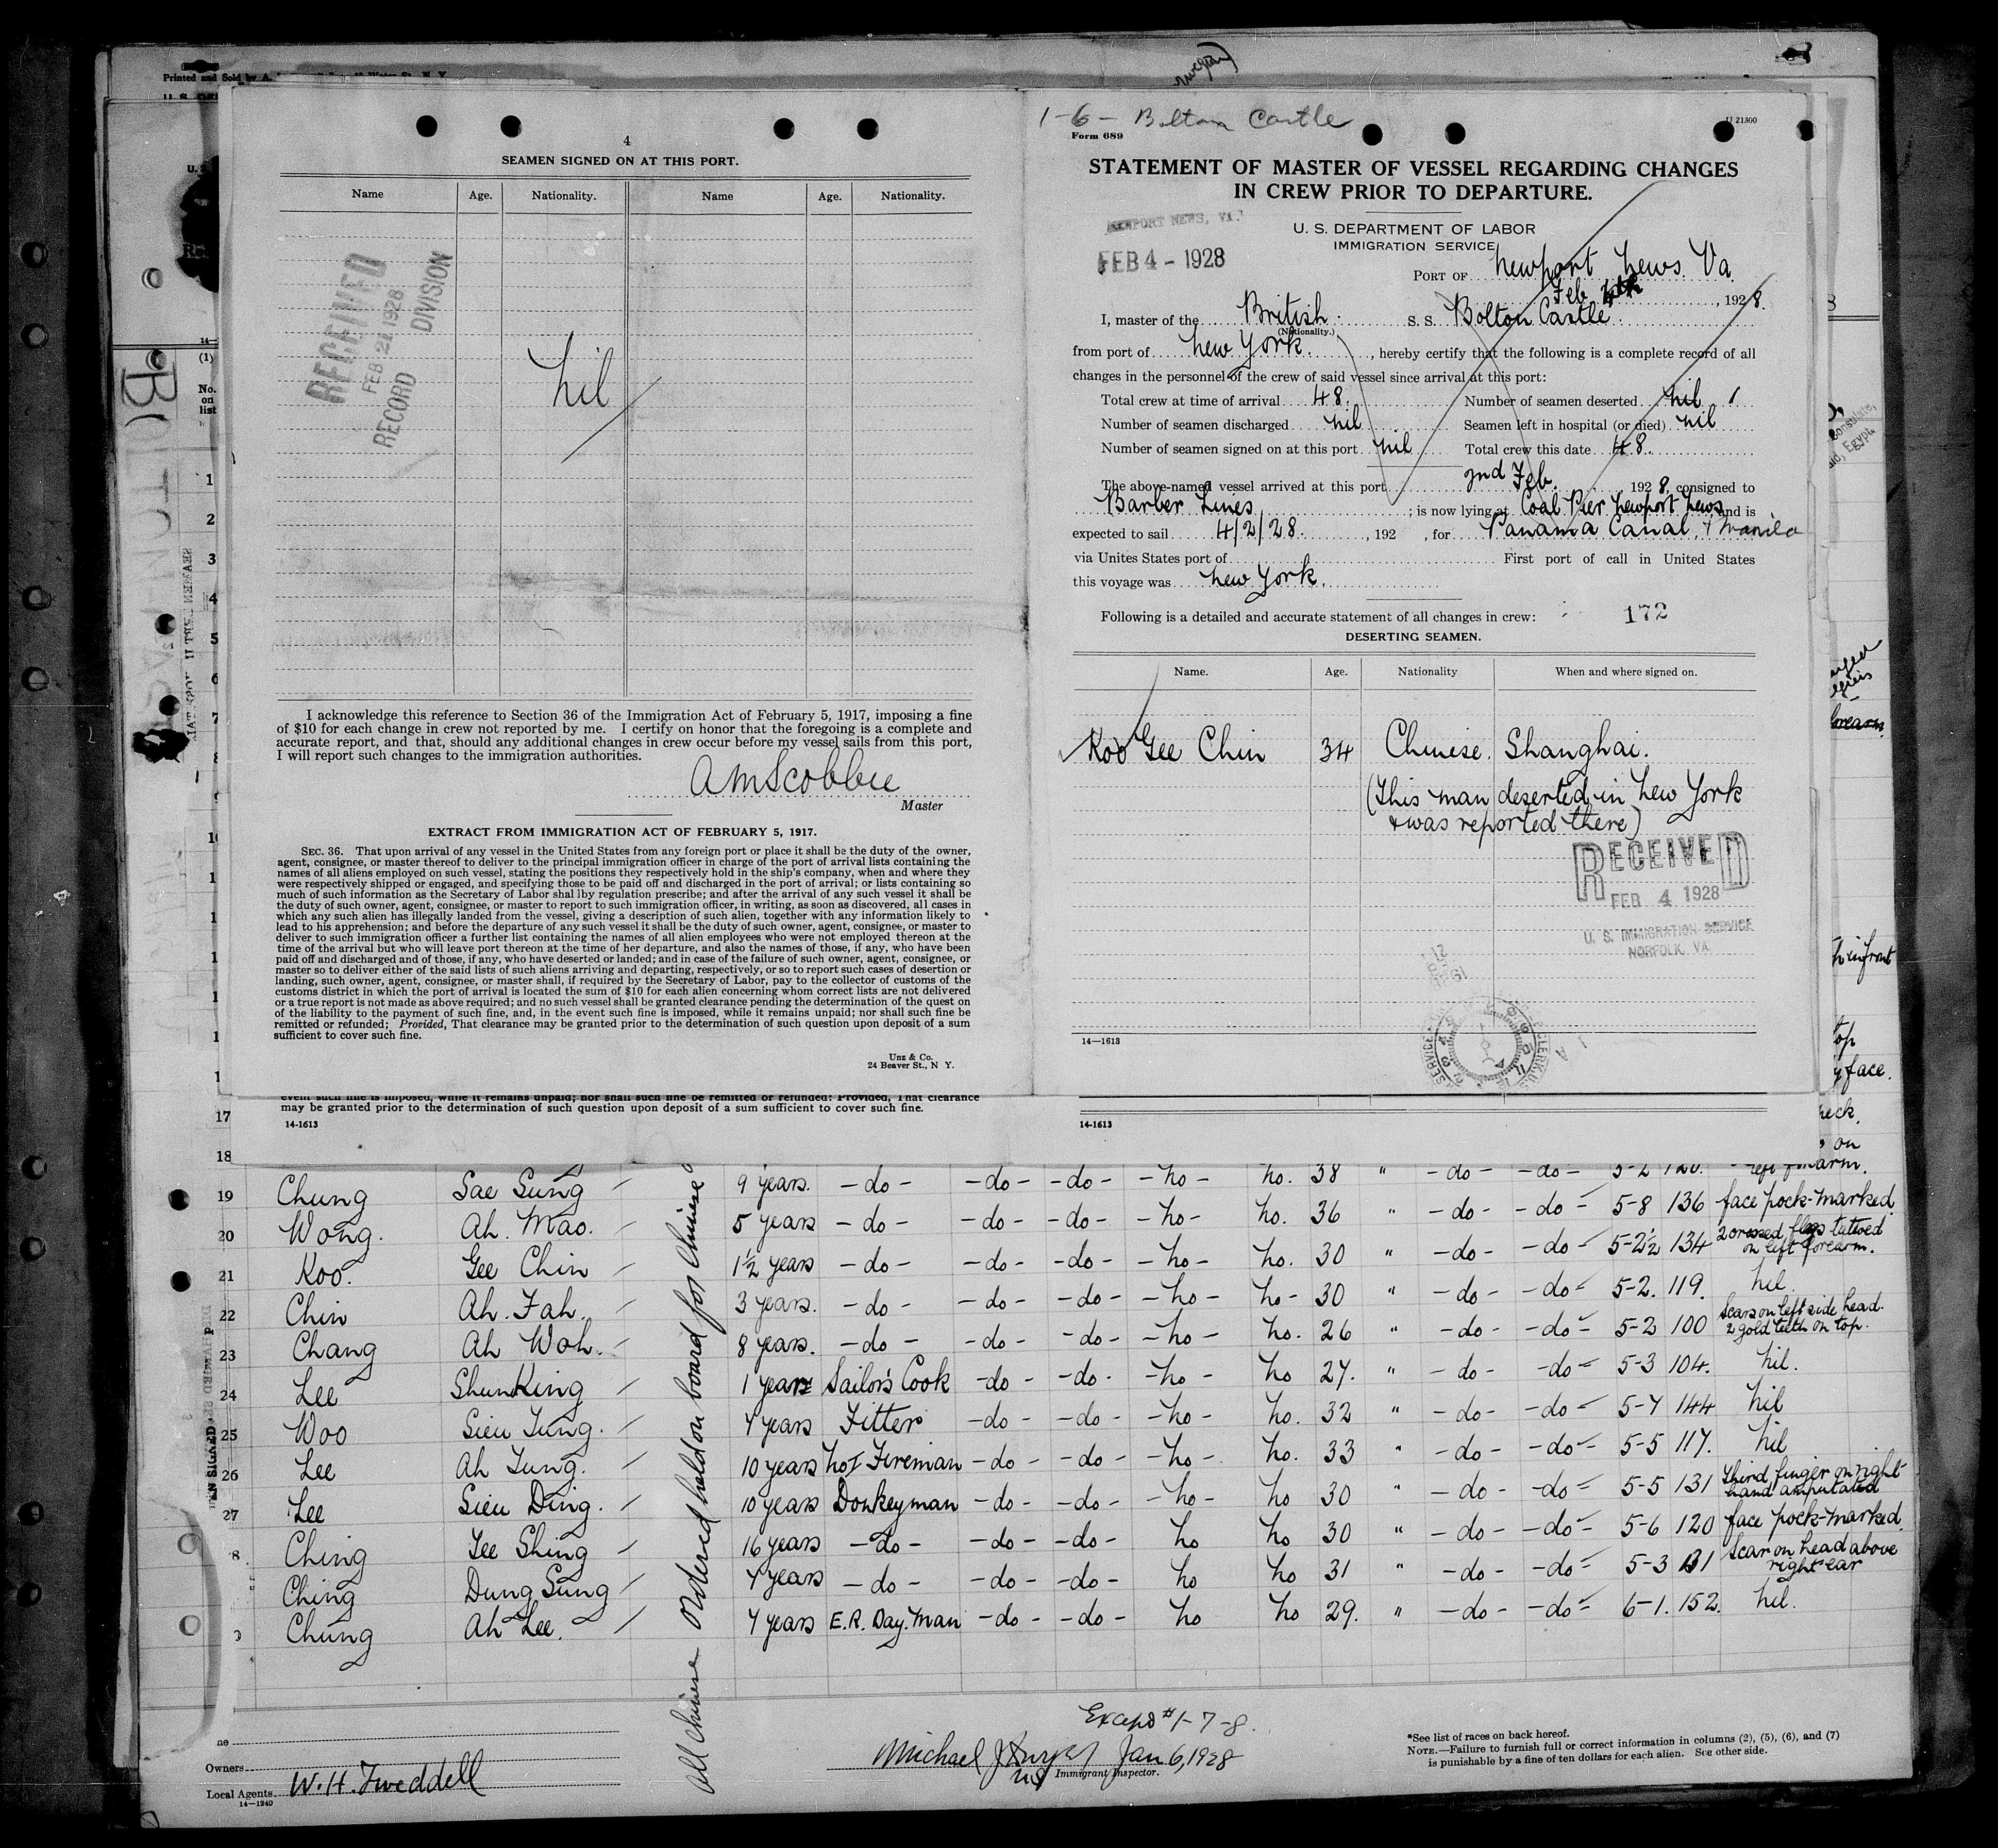 Printed and Sold by A.
4
SEAMEN SIGNED ON AT THIS PORT.
Name Age. Nationality. Name Age. Nationality.
RECEIVED
FEB 21 1928
RECORD DIVISION
nil
I acknowledge this reference to Section 36 of the Immigration Act of February 5, 1917, imposing a fine
of $10 for each change in crew not reported by me. I certify on honor that the foregoing is a complete and
accurate report, and that, should any additional changes in crew occur before my vessel sails from this port,
I will report such changes to the immigration authorities.
AMScobbie
Master
EXTRACT FROM IMMIGRATION ACT OF FEBRUARY 5, 1917.
SEC. 36. That upon arrival of any vessel in the United States from any foreign port or place it shall be the duty of the owner,
agent, consignee, or master thereof to deliver to the principal immigration officer in charge of the port of arrival lists containing the
names of all aliens employed on such vessel, stating the positions they respectively hold in the ship's company, when and where they
were respectively shipped or engaged, and specifying those to be paid off and discharged in the port of arrival; or lists containing so
much of such information as the Secretary of Labor shal lby regulation prescribe; and after the arrival of any such vessel it shall be
the duty of such owner, agent, consignee, or master to report to such immigration officer, in writing, as soon as discovered, all cases in
which any such alien has illegally landed from the vessel, giving a description of such alien, together with any information likely to
lead to his apprehension; and before the departure of any such vessel it shall be the duty of such owner, agent, consignee, or master to
deliver to such immigration officer a further list containing the names of all alien employees who were not employed thereon at the
time of the arrival but who will leave port thereon at the time of her departure, and also the names of those, if any, who have been
paid off and discharged and of those, if any, who have deserted or landed; and in case of the failure of such owner, agent, consignee, or
master so to deliver either of the said lists of such aliens arriving and departing, respectively, or so to report such cases of desertion or
landing, such owner, agent, consignee, or master shall, if required by the Secretary of Labor, pay to the collector of customs of the
customs district in which the port of arrival is located the sum of $10 for each alien concerning whom correct lists are not delivered
or a true report is not made as above required; and no such vessel shall be granted clearance pending the determination of the quest on
of the liability to the payment of such fine, and, in the event such fine is imposed, while it remains unpaid; nor shall such fine be
remitted or refunded; Provided, That clearance may be granted prior to the determination of such question upon deposit of a sum
sufficient to cover such fine.
Unz & Co.
24 Beaver St., N Y.
1-6- Bolton Castle
Form 689
U 21300
STATEMENT OF MASTER OF VESSEL REGARDING CHANGES
IN CREW PRIOR TO DEPARTURE.
NEWPORT NEWS, VA.
FEB 4 - 1928
U. S. DEPARTMENT OF LABOR
IMMIGRATION SERVICE
PORT OF Newport News. Va.
Feb 4th, 1928.
I, master of the British S. S. Bolton Castle
(Nationality.)
from port of New York, hereby certify that the following is a complete record of all
changes in the personnel of the crew of said vessel since arrival at this port:
Total crew at time of arrival 48. Number of seamen deserted nil
Number of seamen discharged nil Seamen left in hospital (or died) nil
Number of seamen signed on at this port nil Total crew this date 48.
The above-named vessel arrived at this port 2nd Feb. 1928, consigned to
Barber Lines; is now lying at Coal Pier Newport News and is
expected to sail 4/2/28, 192 , for Panama Canal, + Manila
via Unites States port of First port of call in United States
this voyage was New York.
Following is a detailed and accurate statement of all changes in crew:
172
DESERTING SEAMEN.
Name. Age. Nationality When and where signed on.
Koo Gee Chin 34 Chinese. Shanghai.
(This man deserted in New York
& was reported there)
RECEIVED
FEB 4 1928
U. S. IMMIGRATION SERVICE
NORFOLK, VA.
14—1613
event such fine is imposed, while it remains unpaid; nor shall such fine be remitted or refunded: Provided, That clearance
may be granted prior to the determination of such question upon deposit of a sum sufficient to cover such fine.
14-1613 14-1613
17
18 38 " -do- -do- 5-2 120. left forearm.
19 Chung Sae Sung 9 years. -do- -do- -do- -No- No. 36 " -do- -do- 5-8 136 face pock-marked.
20 Wong. Ah. Mao. 5 years -do- -do- -do- -No- No. 30 " -do- -do- 5-2½ 134 2 crossed flags tattoed
on left forearm.
21 Koo. Gee Chin 1½ years -do- -do- -do- -No- No. 30 " -do- -do- 5-2. 119. nil.
22 Chin Ah. Fah. 3 years. -do- -do- -do- -No- No- 26 " -do- -do- 5-2 100 Scars on left side head.
2 gold teeth on top.
23 Chang Ah Woh. 8 years. -do- -do- -do- -No- No. 27. " -do- -do- 5-3 104. nil.
24 Lee Shun King 1 year Sailor's Cook -do- -do- -No- No 32 " -do- -do- 5-7 144 nil
25 Woo Sieu Tung. 7 years Fitter -do- -do- -No- No. 33 " -do- -do- 5-5 117. nil
26 Lee Ah Tung. 10 years No1 Fireman -do- -do- -No- No. 30 " -do- -do- 5-5 131 Third finger on right
hand amputated
27 Lee Sieu Ding. 10 years Donkeyman -do- -do- -No- No 30 " -do- -do- 5-6 120 face pock-marked.
8 Ching Yee Shing 16 years -do- -do- -do- No No 31 " -do- -do- 5-3 131 Scar on head above
right ear
Ching Dung Sung 7 years -do- -do- -do- No No 29. " -do- -do- 6-1. 152. nil.
Chung Ah Lee. 7 years E.R. Day. Man -do- -do- No No
All Chinese Ordered held on board for Chinese
Except #1-7-8.
Michael J Jan 6, 1928
Immigrant Inspector.
Owners
Local Agents W. H. Tweddell
14—1240
*See list of races on back hereof.
NOTE.—Failure to furnish full or correct information in columns (2), (5), (6), and (7)
is punishable by a fine of ten dollars for each alien. See other side.